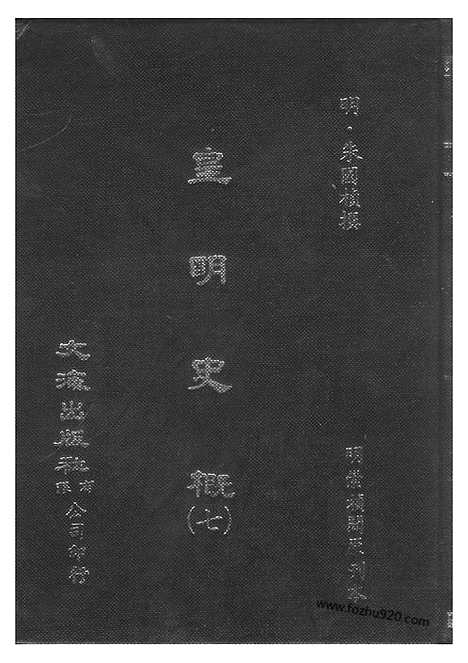 明・朱國楨撰
明崇禎間原刊本
皇明史概
(七)
文海出版社有限公司印行
www.fozhu920.com